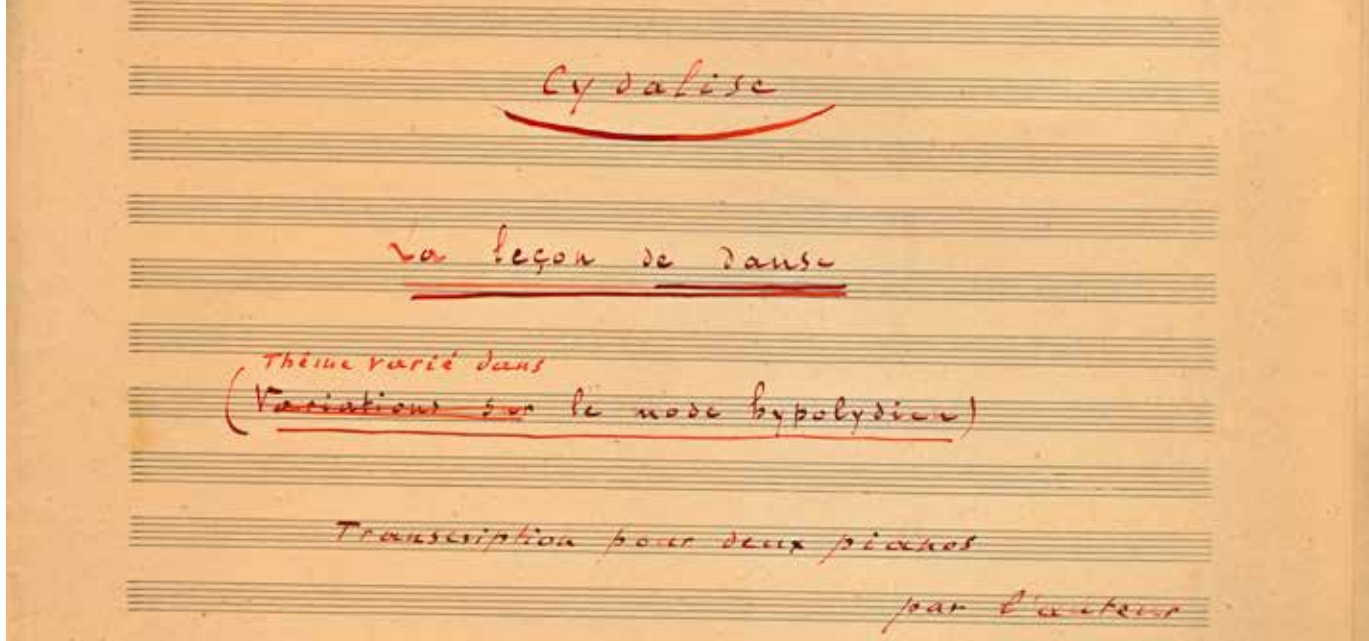 Cydalise
La leçon de danse
Thème varié dans
(Variations sur le mode hypolydien)
Transcription pour deux pianos
par l'auteur